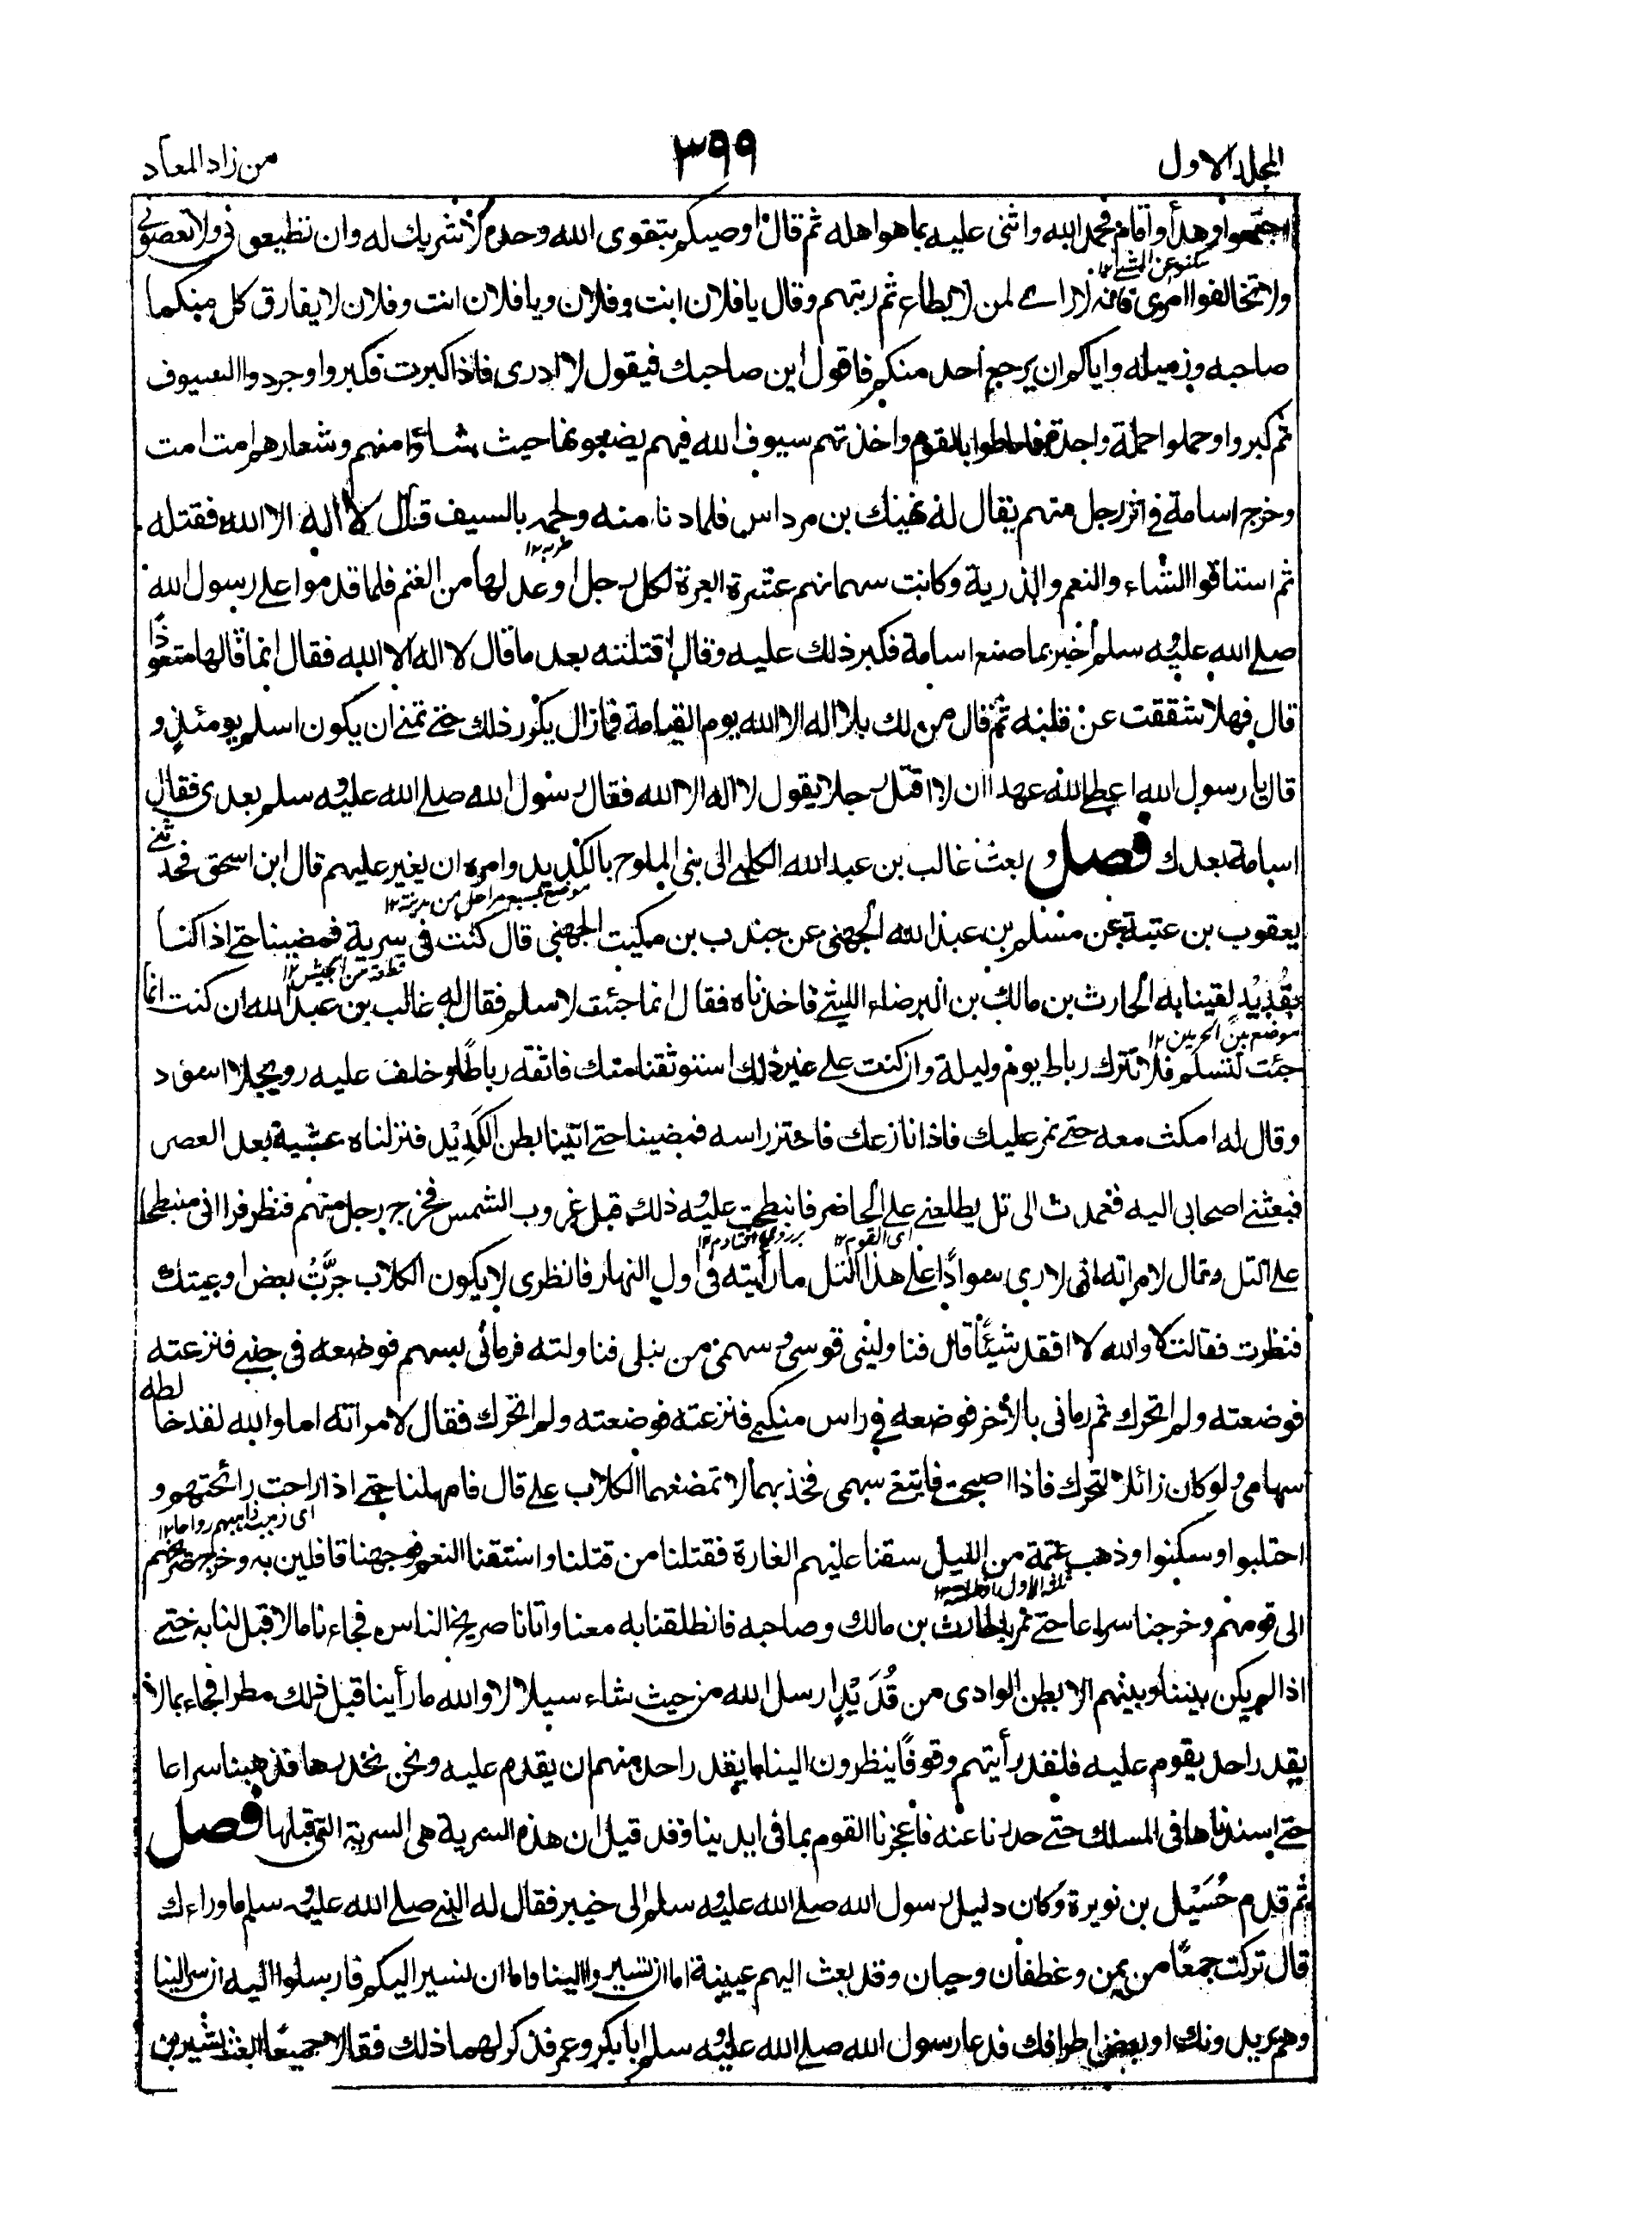 المجلد الاول
٣٩٩
من زاد المعاد
اجتمعوا وهدأوا قام فحمد الله واثنى عليه بما هو اهله ثم قال اوصيكم بتقوى الله وحده لا شريك له وان تطيعونى ولا تعصونى
سكنوا عن المشى ١٢
ولا تخالفوا امرى فانه لا راے لمن لا يطاع ثم رتبهم وقال يا فلان انت وفلان ويا فلان انت وفلان لا يفارق كل منكما
صاحبه وزميله واياكم ان يرجع احد منكم فاقول اين صاحبك فيقول لا ادرى فاذا كبرت فكبروا وجردوا السيوف
ثم كبروا وحملوا حملة واحدة فاحاطوا بالقوم واخذتهم سيوف الله فيهم يضعونها حيث شاؤا منهم وشعارهم امت امت
وخرج اسامة فى اثر رجل منهم يقال له نهيك بن مرداس فلما دنا منه ولحمه بالسيف قال لا اله الا الله فقتله
ضربه ١٢
ثم استاقوا الشاء والنعم والذرية وكانت سهمانهم عشرة ابعرة لكل رجل اوعدلها من الغنم فلما قدموا على رسول الله
صلے الله عليه وسلم أخبر بما صنع اسامة فكبر ذلك عليه وقال أقتلته بعد ما قال لا اله الا الله فقال انما قالها متعوذًا
قال فهلا شققت عن قلبه ثم قال من لك بلا اله الا الله يوم القيامة فما زال يكرر ذلك حتے تمنے ان يكون اسلم يومئذٍ و
قال يا رسول الله اعطى الله عهدا ان لا اقتل رجلا يقول لا اله الا الله فقال رسول الله صلے الله عليه وسلم بعدى فقال
اسامة بعدك فصل وبعث غالب بن عبد الله الكلبے الى بنى الملوح بالكديد وامره ان يغير عليهم قال ابن اسحق فحدثنے
موضع بسبع مراحل من مدينة ١٢
يعقوب بن عتبة عن مسلم بن عبد الله الجهنى عن جندب بن مكيث الجهنى قال كنت فى سرية فمضينا حتے اذا كنا
قطعة من الجيش ١٢
بقُدَيْد لقينا به الحارث بن مالك بن البرضاء الليثے فاخذناه فقال انما جئت لاسلم فقال له غالب بن عبد الله ان كنت انما
موضع بين الحرمين ١٢
جئت لتسلم فلا نترك رباط يوم وليلة وان كنت على غير ذلك استوثقنا منك فاثقه رباطا وخلف عليه رويجلا اسود
وقال له امكث معه حتے نمر عليك فاذا نازعك فاحتز راسه فمضينا حتے اتينا بطن الكَدِيْد فنزلناه عشية بعد العصر
فبعثنے اصحابى اليه فعمدت الى تل يطلعنے على الحاضر فانبطحت عليه وذلك قبل غروب الشمس فخرج رجل منهم فنظر فراانى منبطحا
اى القوم ١٢
على التل وقال لامراته انى لارى سوادًا على هذا التل ما رأيته فى اول النهار فانظرى لا يكون الكلاب جرَّتْ بعض اوعيتك
فنظرت فقالت لا والله لا افقد شيئًا قال فناولينى قوسى وسهمى من نبلى فناولته فرمانى بسهم فوضعه فى جنبے فنزعته
فوضعته ولم اتحرك ثم رمانى بالأخر فوضعه فى راس منكبے فنزعته فوضعته ولم اتحرك فقال لامراته اما والله لقد خالطه
سهامى ولو كان زائلا لتحرك فاذا اصبحت فابتغے سهمى فخذيهما لا تمضغهما الكلاب على قال فامهلنا حتے اذا راحت رائحتهم و
احتلبوا وسكنوا وذهب عتمة من الليل سقنا عليهم الغارة فقتلنا من قتلنا واستقنا النعم فوجهنا قافلين به وخرج صريخهم
الى قومهم وخرجنا سراعا حتے نمر بالحارث بن مالك وصاحبه فانطلقنا به معنا واتانا صريخ الناس فجاءنا ما لا قبل لنا به حتے
اذا لم يكن بيننا وبينهم الا بطن الوادى من قُدَيْدٍ ارسل الله من حيث شاء سيلا لا والله ما رأينا قبل ذلك مطرا فجاء بما لا
يقدر احد يقوم عليه فلقد رأيتهم وقوفًا ينظرون الينا ما يقدر احد منهم ان يقدم عليه ونحن نحدرها فذهبنا سراعا
حتے اسندناها فى المسلك حتے حدرنا عنه فاعجزنا القوم بما فى ايدينا وقد قيل ان هذه السرية هى السرية التى قبلها فصل
ثم قدم حُسَيْل بن نويرة وكان دليل رسول الله صلے الله عليه وسلم الى خيبر فقال له النبے صلے الله عليه وسلم ما وراءك
قال تركت جمعًا من يمن وغطفان وحيان وقد بعث اليهم عيينة اما ان تسيروا الينا واما ان نسير اليكم فارسلوا اليه ان سر الينا
وهم يريدونك او بعض اطرافك فدعا رسول الله صلے الله عليه وسلم ابا بكر وعمر فذكر لهما ذلك فقالا جميعًا ابعث بشير بن